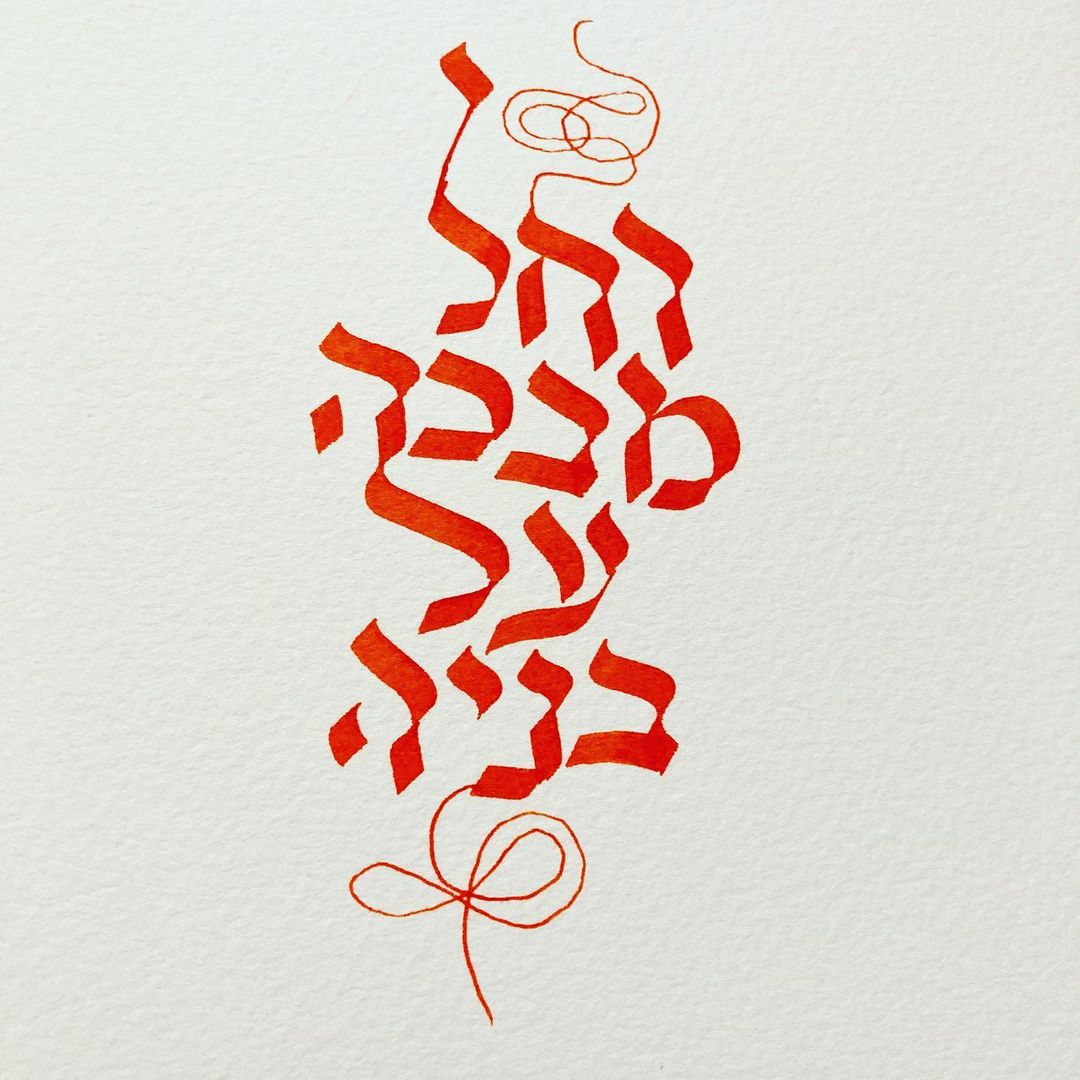 רחל
מבכה
על
בניה